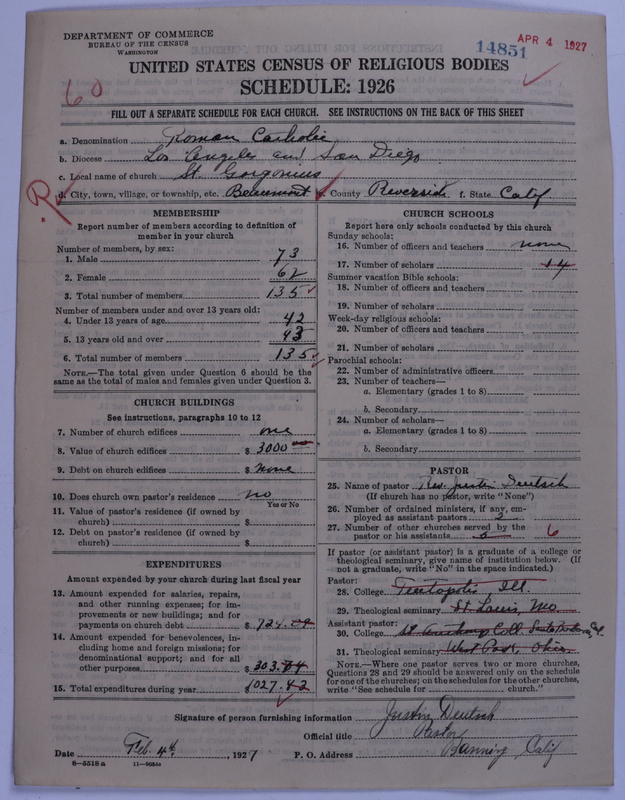 DEPARTMENT OF COMMERCE
BUREAU OF THE CENSUS
WASHINGTON
14851
APR 4 1927
UNITED STATES CENSUS OF RELIGIOUS BODIES
SCHEDULE: 1926
60
FILL OUT A SEPARATE SCHEDULE FOR EACH CHURCH. SEE INSTRUCTIONS ON THE BACK OF THIS SHEET
a. Denomination Roman Catholic
b. Diocese Los Angeles and San Diego
c. Local name of church St. Gorgonius
R
d. City, town, village, or township, etc. Beaumont e. County Riverside f. State Calif
MEMBERSHIP
Report number of members according to definition of
member in your church
Number of members, by sex:
1. Male 73
2. Female 62
3. Total number of members 135
Number of members under and over 13 years old:
4. Under 13 years of age 42
5. 13 years old and over 93
6. Total number of members 135
NOTE.—The total given under Question 6 should be the
same as the total of males and females given under Question 3.
CHURCH BUILDINGS
See instructions, paragraphs 10 to 12
7. Number of church edifices one
8. Value of church edifices $ 3000
9. Debt on church edifices $ None
10. Does church own pastor's residence no
Yes or No
11. Value of pastor's residence (if owned by
church) $
12. Debt on pastor's residence (if owned by
church) $
EXPENDITURES
Amount expended by your church during last fiscal year
13. Amount expended for salaries, repairs,
and other running expenses; for im-
provements or new buildings; and for
payments on church debt $ 724.
14. Amount expended for benevolences, in-
cluding home and foreign missions; for
denominational support; and for all
other purposes $ 303.
15. Total expenditures during year $ 1027.42
CHURCH SCHOOLS
Report here only schools conducted by this church
Sunday schools:
16. Number of officers and teachers none
17. Number of scholars 14
Summer vacation Bible schools:
18. Number of officers and teachers
19. Number of scholars
Week-day religious schools:
20. Number of officers and teachers
21. Number of scholars
Parochial schools:
22. Number of administrative officers
23. Number of teachers—
a. Elementary (grades 1 to 8)
b. Secondary
24. Number of scholars—
a. Elementary (grades 1 to 8)
b. Secondary
PASTOR
25. Name of pastor Rev. Justin Deutsch
(If church has no pastor, write "None")
26. Number of ordained ministers, if any, em-
ployed as assistant pastors 2
27. Number of other churches served by the
pastor or his assistants 5 6
If pastor (or assistant pastor) is a graduate of a college or
theological seminary, give name of institution below. (If
not a graduate, write "No" in the space indicated.)
Pastor:
28. College Teutopolis Ill.
29. Theological seminary St. Louis, Mo.
Assistant pastor:
30. College St Anthony Coll. Santa Barbara, Cal.
31. Theological seminary West Park, Ohio
NOTE.—Where one pastor serves two or more churches,
Questions 28 and 29 should be answered only on the schedule
for one of the churches; on the schedules for the other churches,
write "See schedule for church."
Signature of person furnishing information Justin Deutsch
Official title Pastor
Date Feb. 4th, 1927 P. O. Address Banning, Calif
8-5518 a